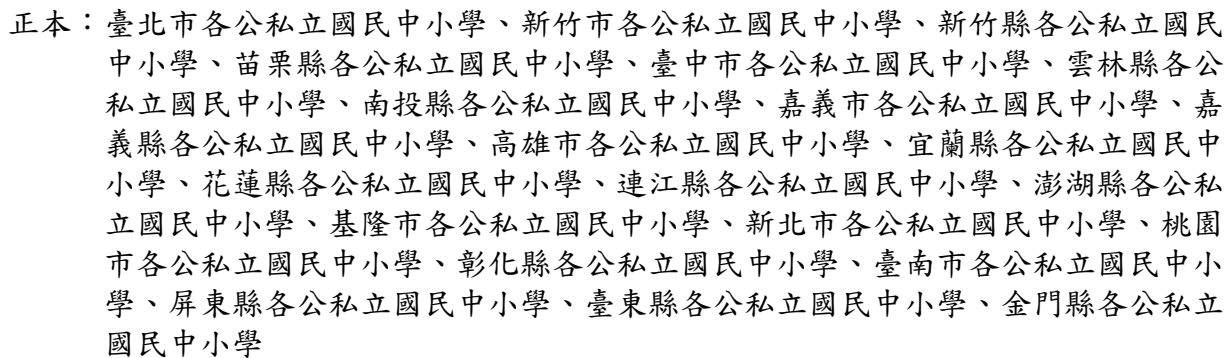 正本：臺北市各公私立國民中小學、新竹市各公私立國民中小學、新竹縣各公私立國民
中小學、苗栗縣各公私立國民中小學、臺中市各公私立國民中小學、雲林縣各公
私立國民中小學、南投縣各公私立國民中小學、嘉義市各公私立國民中小學、嘉
義縣各公私立國民中小學、高雄市各公私立國民中小學、宜蘭縣各公私立國民中
小學、花蓮縣各公私立國民中小學、連江縣各公私立國民中小學、澎湖縣各公私
立國民中小學、基隆市各公私立國民中小學、新北市各公私立國民中小學、桃園
市各公私立國民中小學、彰化縣各公私立國民中小學、臺南市各公私立國民中小
學、屏東縣各公私立國民中小學、臺東縣各公私立國民中小學、金門縣各公私立
國民中小學